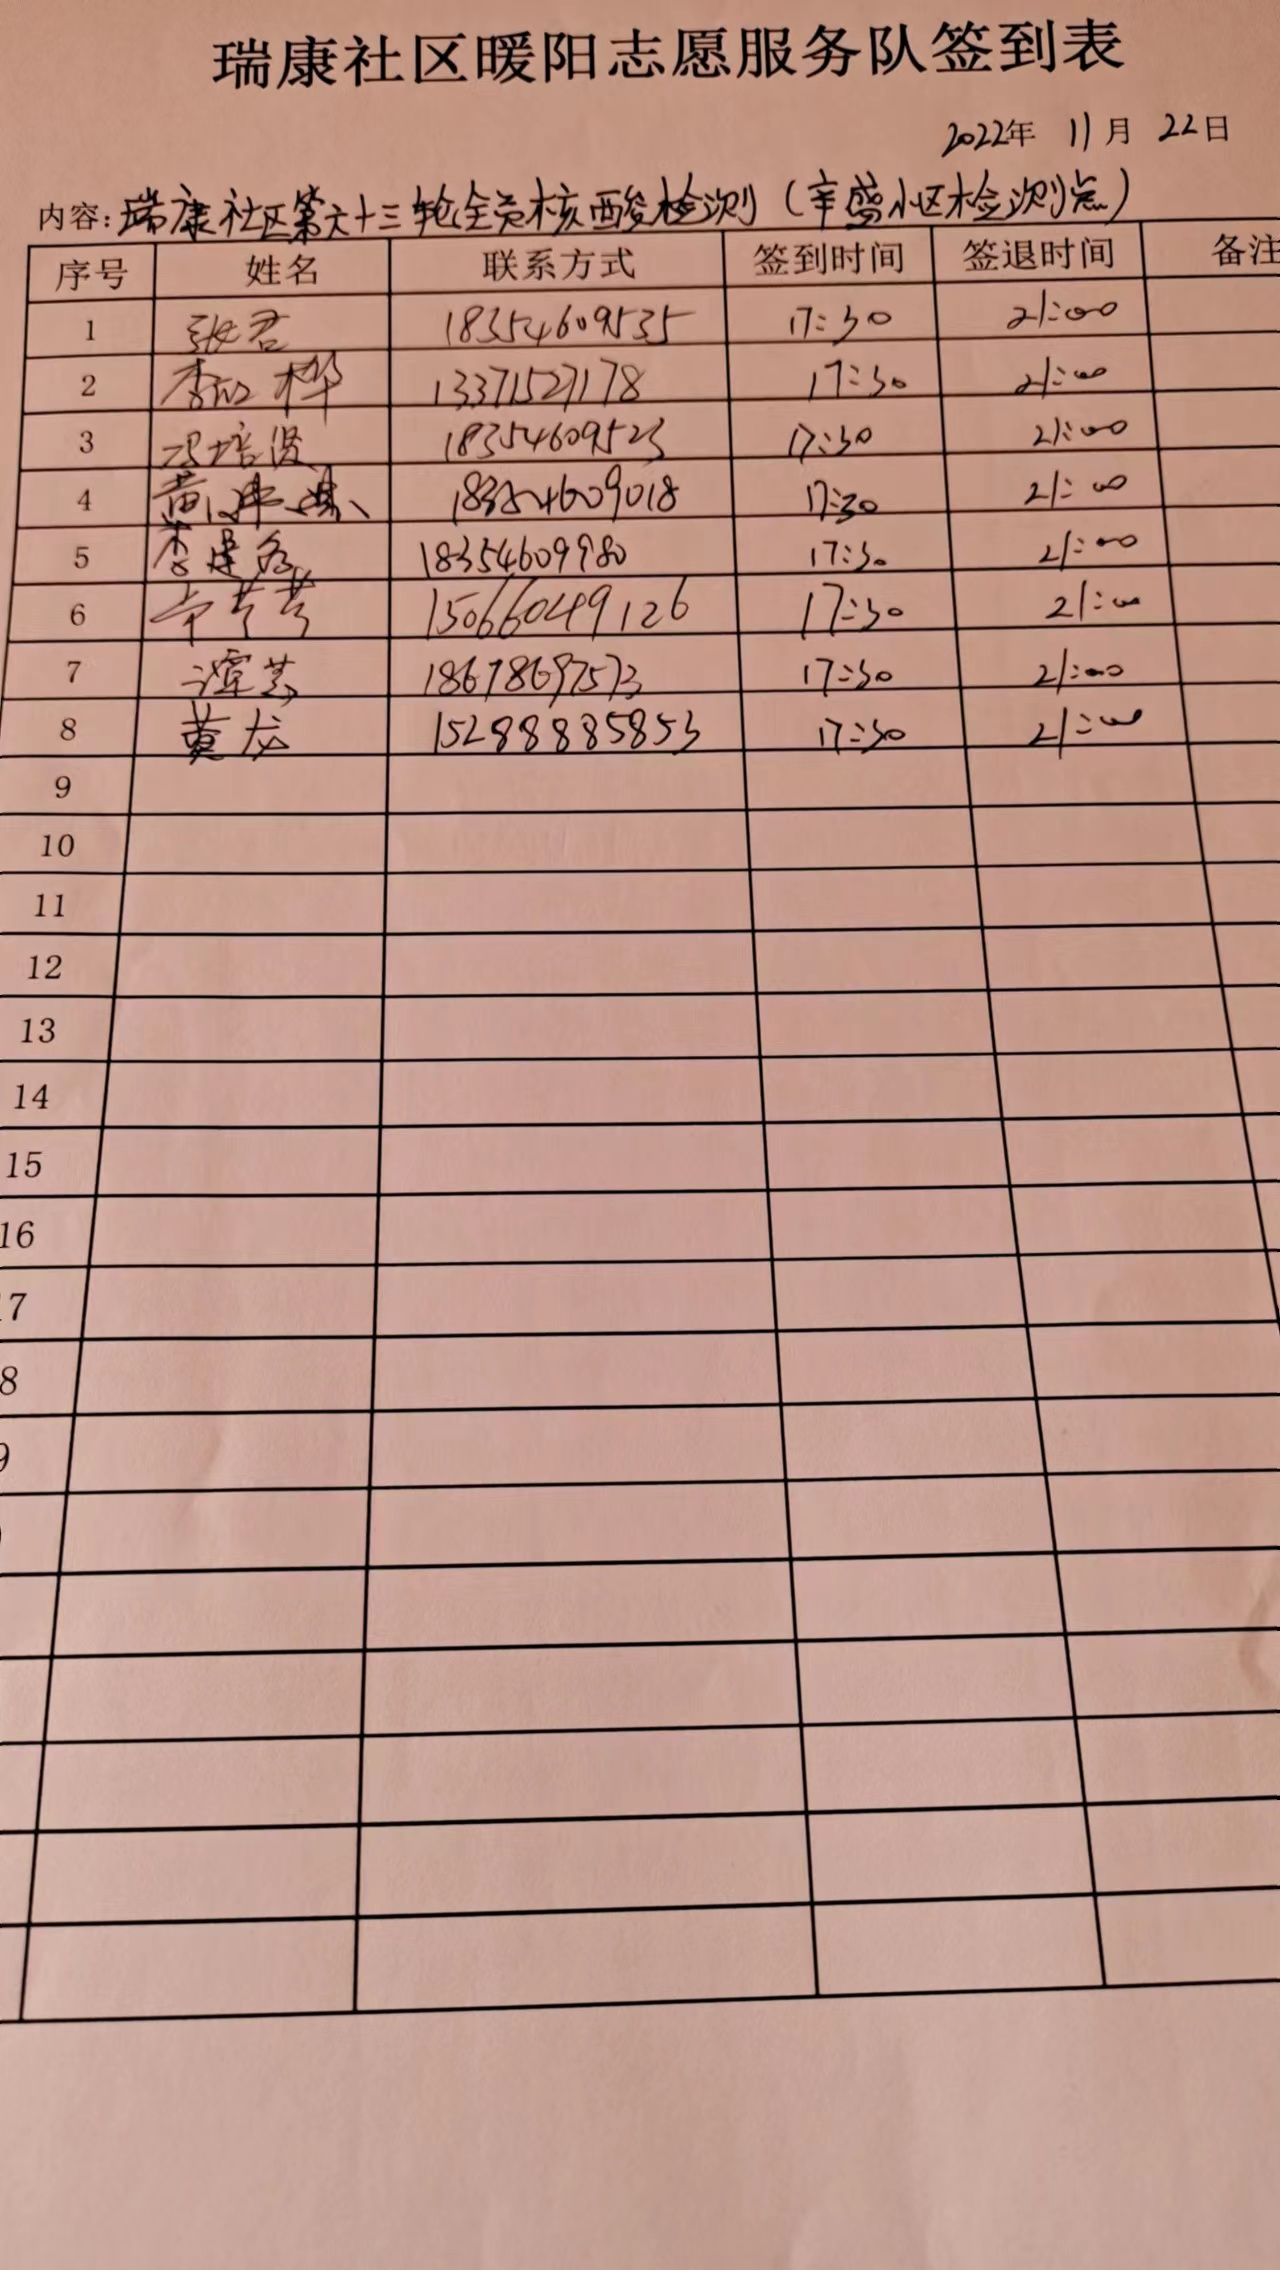 瑞康社区暖阳志愿服务队签到表
2022年 11月 22日
内容:瑞康社区第六十三轮全员核酸检测(辛盛小区检测点)
序号 姓名 联系方式 签到时间 签退时间 备注
1 张君 18354609535 17:30 21:00
2 李 桦 13371527178 17:30 21:00
3 冯培贤 18354609523 17:30 21:00
4 黄 18354609018 17:30 21:00
5 李建 18354609980 17:30 21:00
6 15066049126 17:30 21:00
7 谭芸 18678697573 17:30 21:00
8 黄龙 15288885853 17:30 21:00
9
10
11
12
13
14
15
16
17
8
9